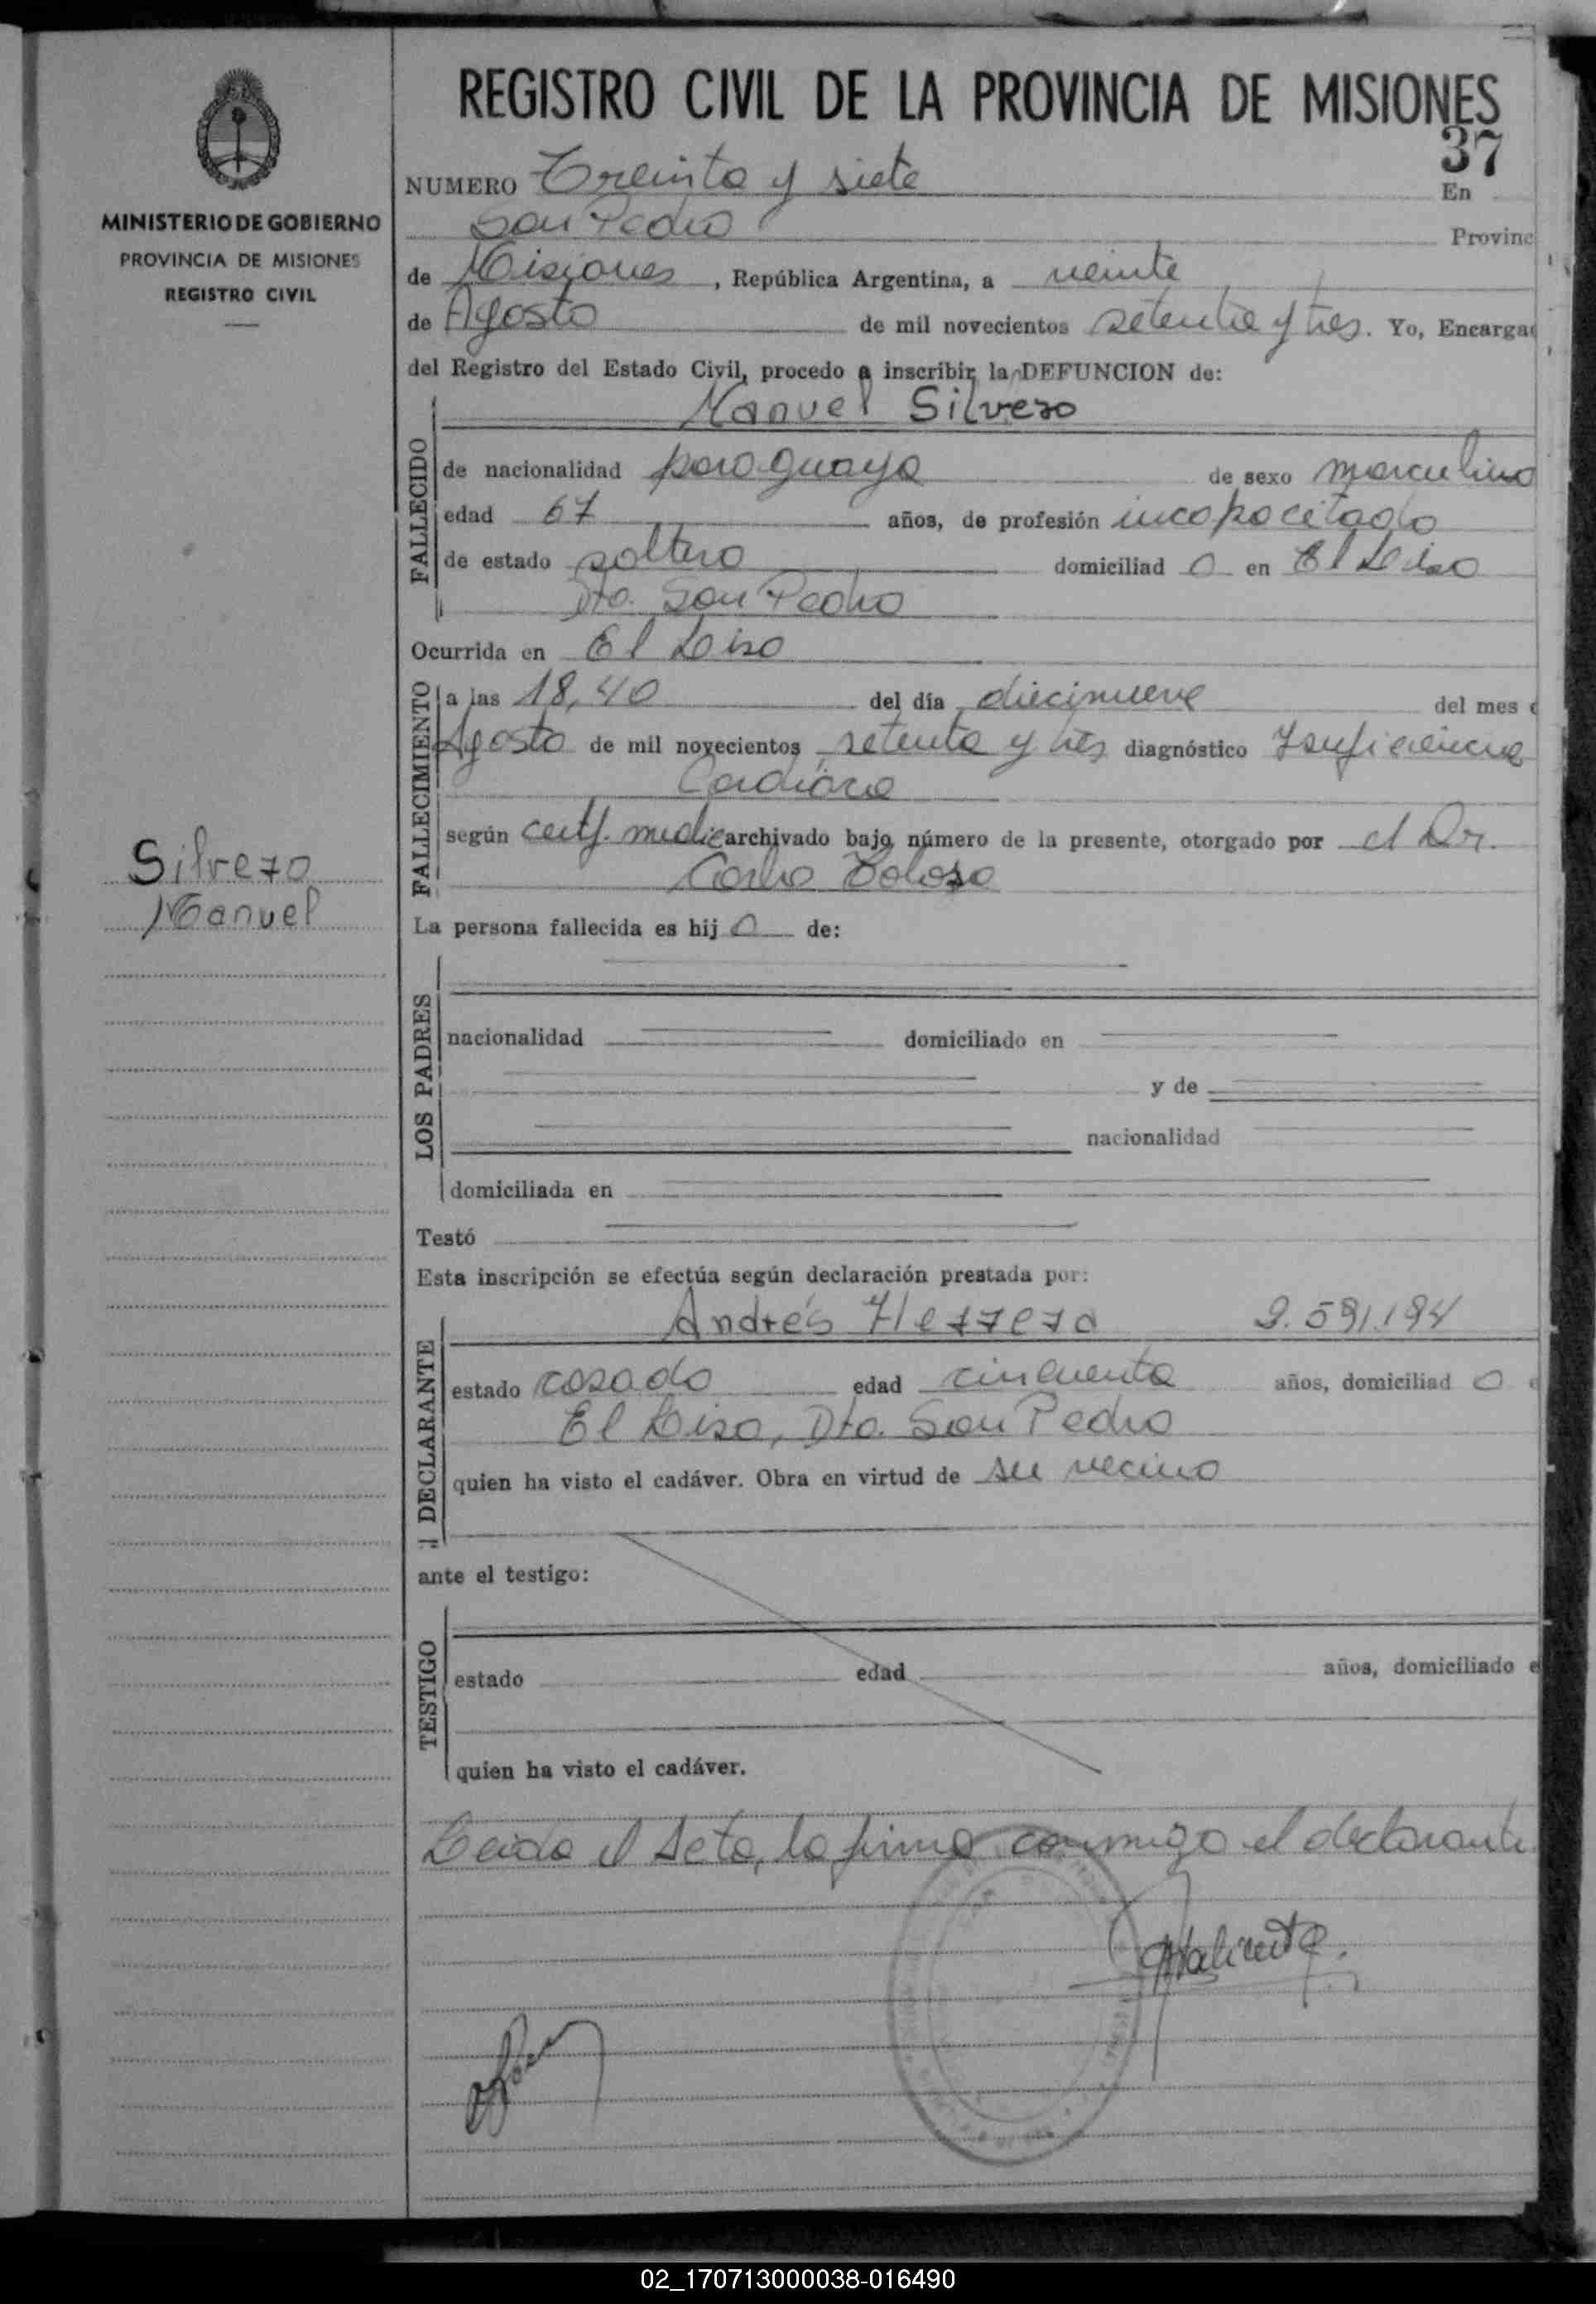 REGISTRO CIVIL DE LA PROVINCIA DE MISIONES
37
MINISTERIO DE GOBIERNO
PROVINCIA DE MISIONES
REGISTRO CIVIL
NUMERO Treinta y siete En
San Pedro Provinc
de Misiones, República Argentina, a veinte
de Agosto de mil novecientos setenta y tres. Yo, Encargad
del Registro del Estado Civil, procedo a inscribir la DEFUNCION de:
Manuel Silvero
FALLECIDO
de nacionalidad paraguaya de sexo masculino
edad 67 años, de profesión incapacitado
de estado soltero domiciliad o en El Liso
Dto. San Pedro
Ocurrida en El Liso
FALLECIMIENTO
a las 18,40 del día diecinueve del mes d
Agosto de mil novecientos setenta y tres diagnóstico Insuficiencia
Cardiaca
según certf. medic archivado bajo número de la presente, otorgado por el Dr.
Carlo
Silvero
Manuel
La persona fallecida es hij o de:
LOS PADRES
nacionalidad domiciliado en
y de
nacionalidad
domiciliada en
Testó
Esta inscripción se efectúa según declaración prestada por:
Andrés Herrera 9.591.194
DECLARANTE
estado casado edad cincuenta años, domiciliad o e
El Liso, Dto. San Pedro
quien ha visto el cadáver. Obra en virtud de su vecino
ante el testigo:
TESTIGO
estado edad años, domiciliado e
quien ha visto el cadáver.
Leida el Acta, la firma conmigo el declarante
02_170713000038-016490